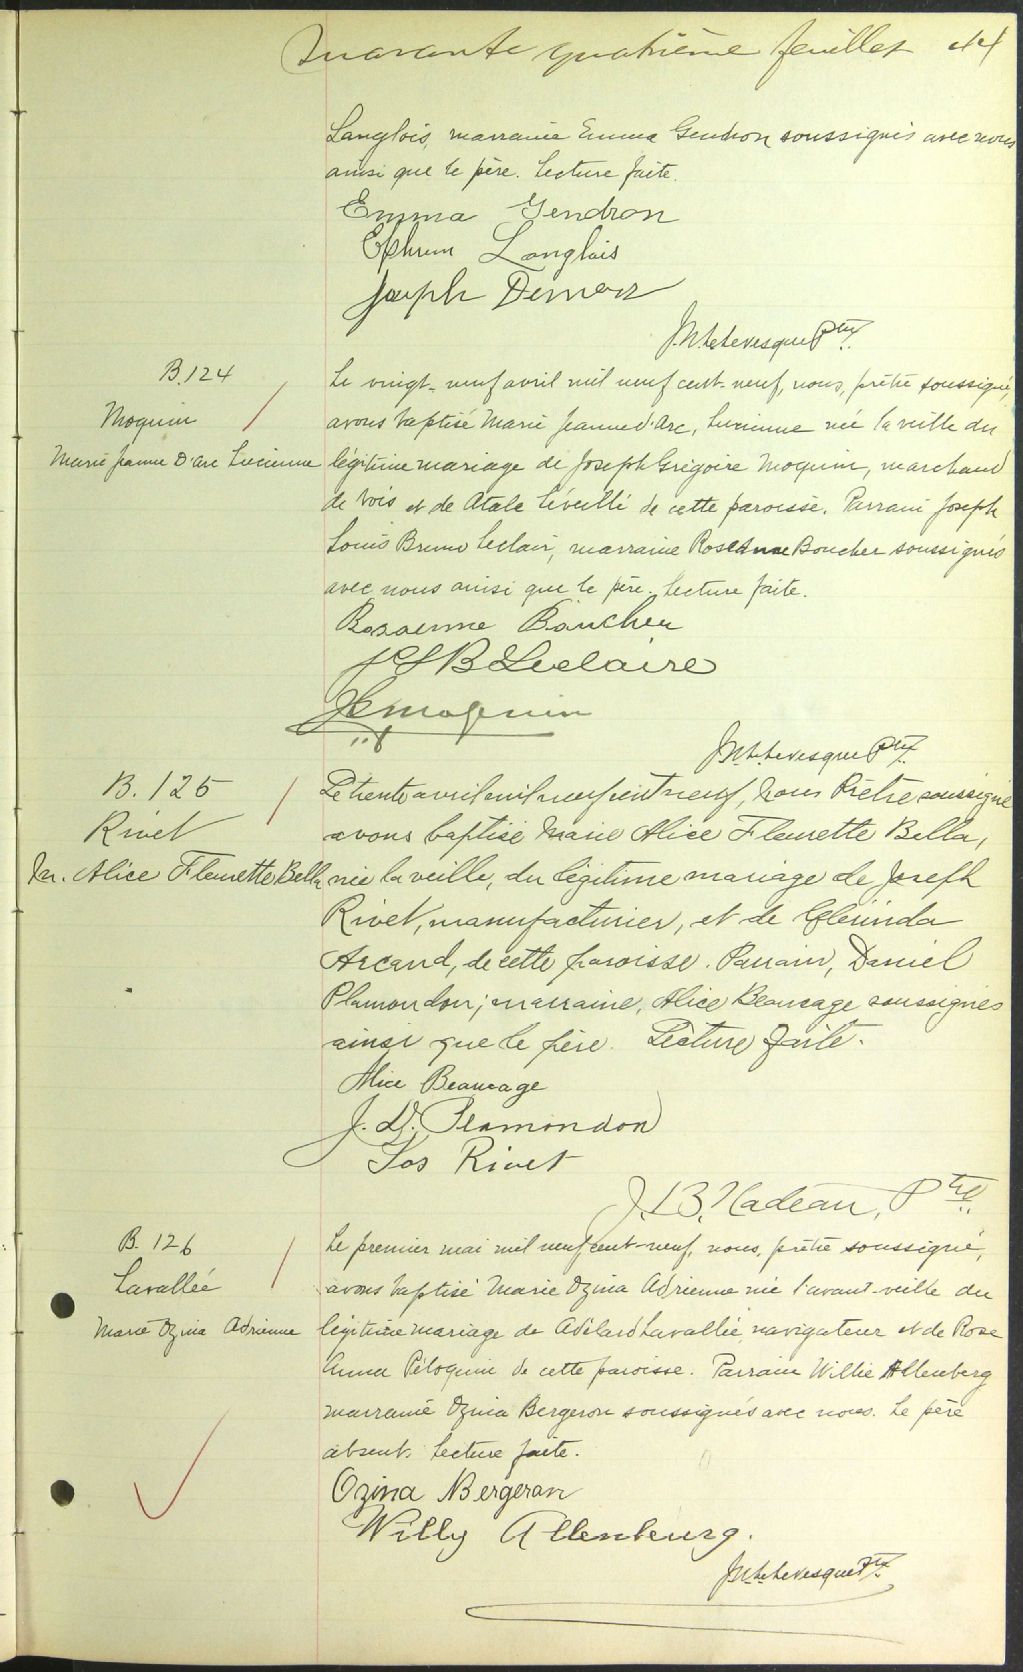 Quarante quatrième feuillet 44
Langlois, marraine Emma Gendron soussignés avec nous
ainsi que le père. Lecture faite.
Emma Gendron
Ephrem Langlois
Joseph Demers
J.M.L. Levesque Ptre
B.124
Moquin
Marie Jeanne D'arc Lucienne
Le vingt-neuf avril mil neuf cent-neuf, nous, prêtre soussigné,
avons baptisé Marie Jeanne d'Arc, Lucienne née la veille du
légitime mariage de Joseph Grégoire Moquin, marchand
de bois et de Atale Léveillé de cette paroisse. Parrain Joseph
Louis Bruno Leclair, marraine Rose Anna Boucher soussignés
avec nous ainsi que le père. Lecture faite.
Rosaenne Boucher
J L B Leclaire
J G Moquin
J.M.L. Levesque Ptre
B. 125
Rivet
M. Alice Fleurette Bella
Le trente avril mil neuf cent neuf, Nous Prêtre soussigné
avons baptisé Marie Alice Fleurette Bella,
née la veille, du légitime mariage de Joseph
Rivet, manufacturier, et de Clérinda
Arcand, de cette paroisse. Parrain, Daniel
Plamondon; marraine, Alice Beaucage soussignés
ainsi que le père. Lecture faite.
Alice Beaucage
J. D. Plamondon
Jos Rivet
J. B. Nadeau, Ptre
B. 126
Lavallée
Marie Ozina Adrienne
Le premier mai mil neuf cent-neuf, nous, prêtre soussigné,
avons baptisé Marie Ozina Adrienne née l'avant-veille du
légitime mariage de Adélard Lavallée, navigateur et de Rose
Anna Péloquin de cette paroisse. Parrain Willie Allenberg
marraine Ozina Bergeron soussignés avec nous. Le père
absent. Lecture faite.
Ozina Bergeron
Willy Allenburg.
J.M.L. Levesque Ptre